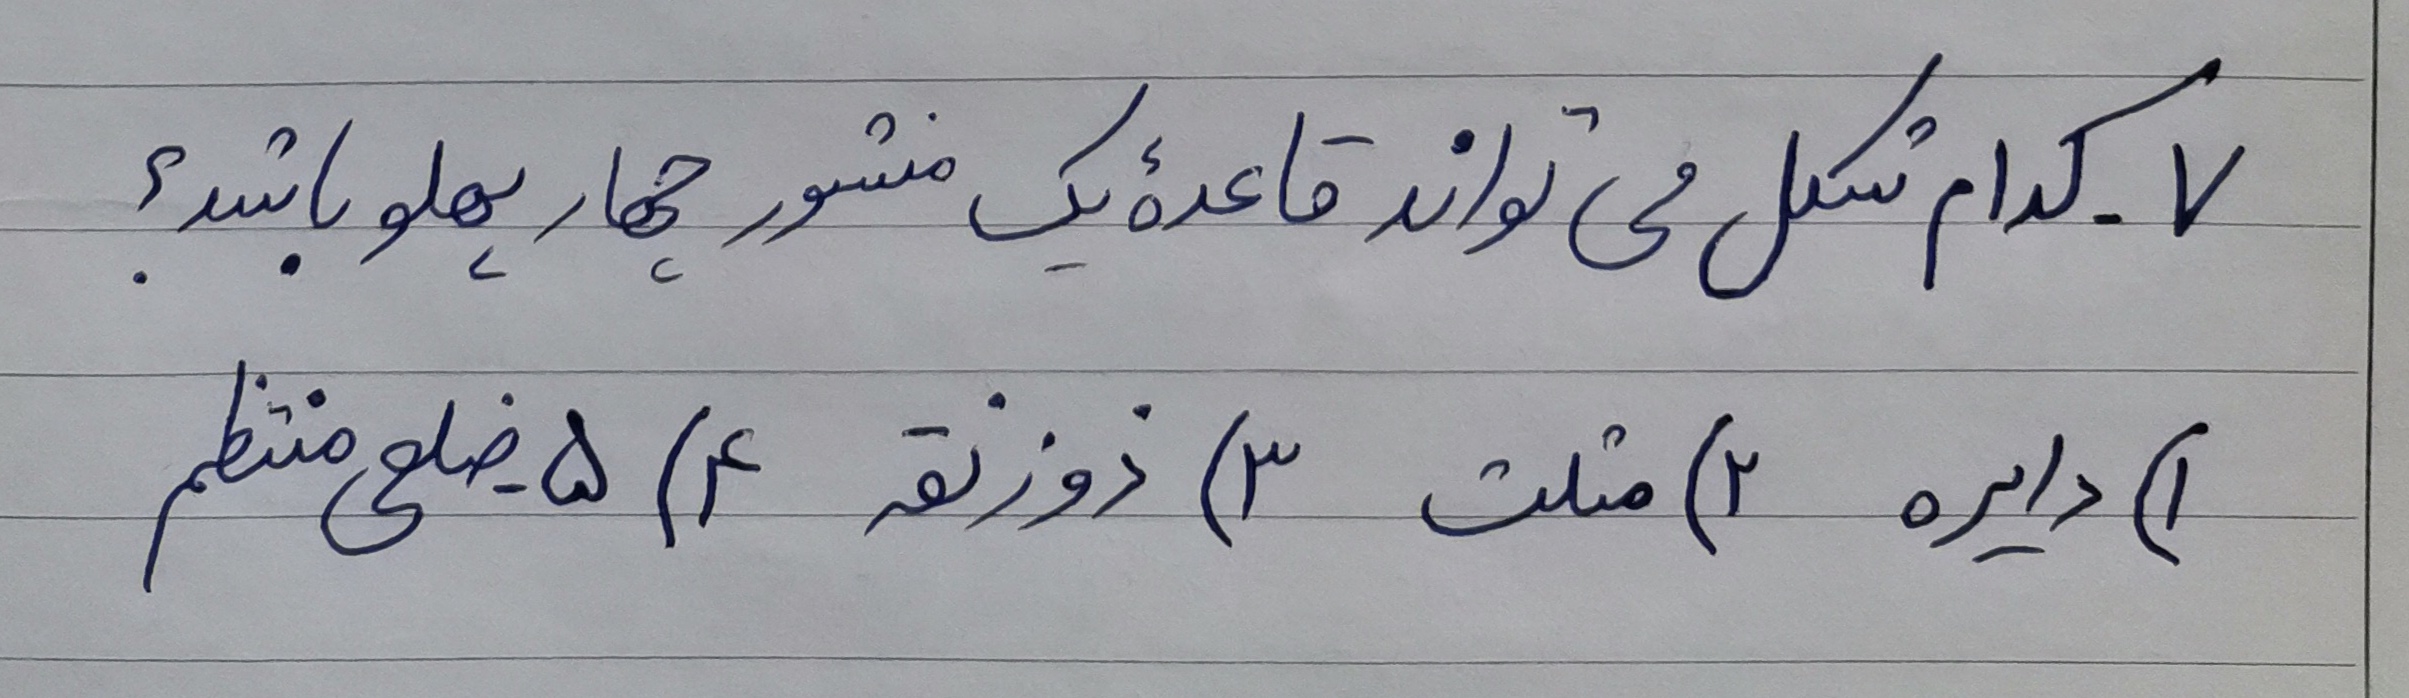 ۷_ کدام شکل می تواند قاعدهٔ یک منشور چهار پهلو باشد؟
۱) دایره ۲) مثلث ۳) ذوزنقه ۴) ۵_ضلعی منتظم